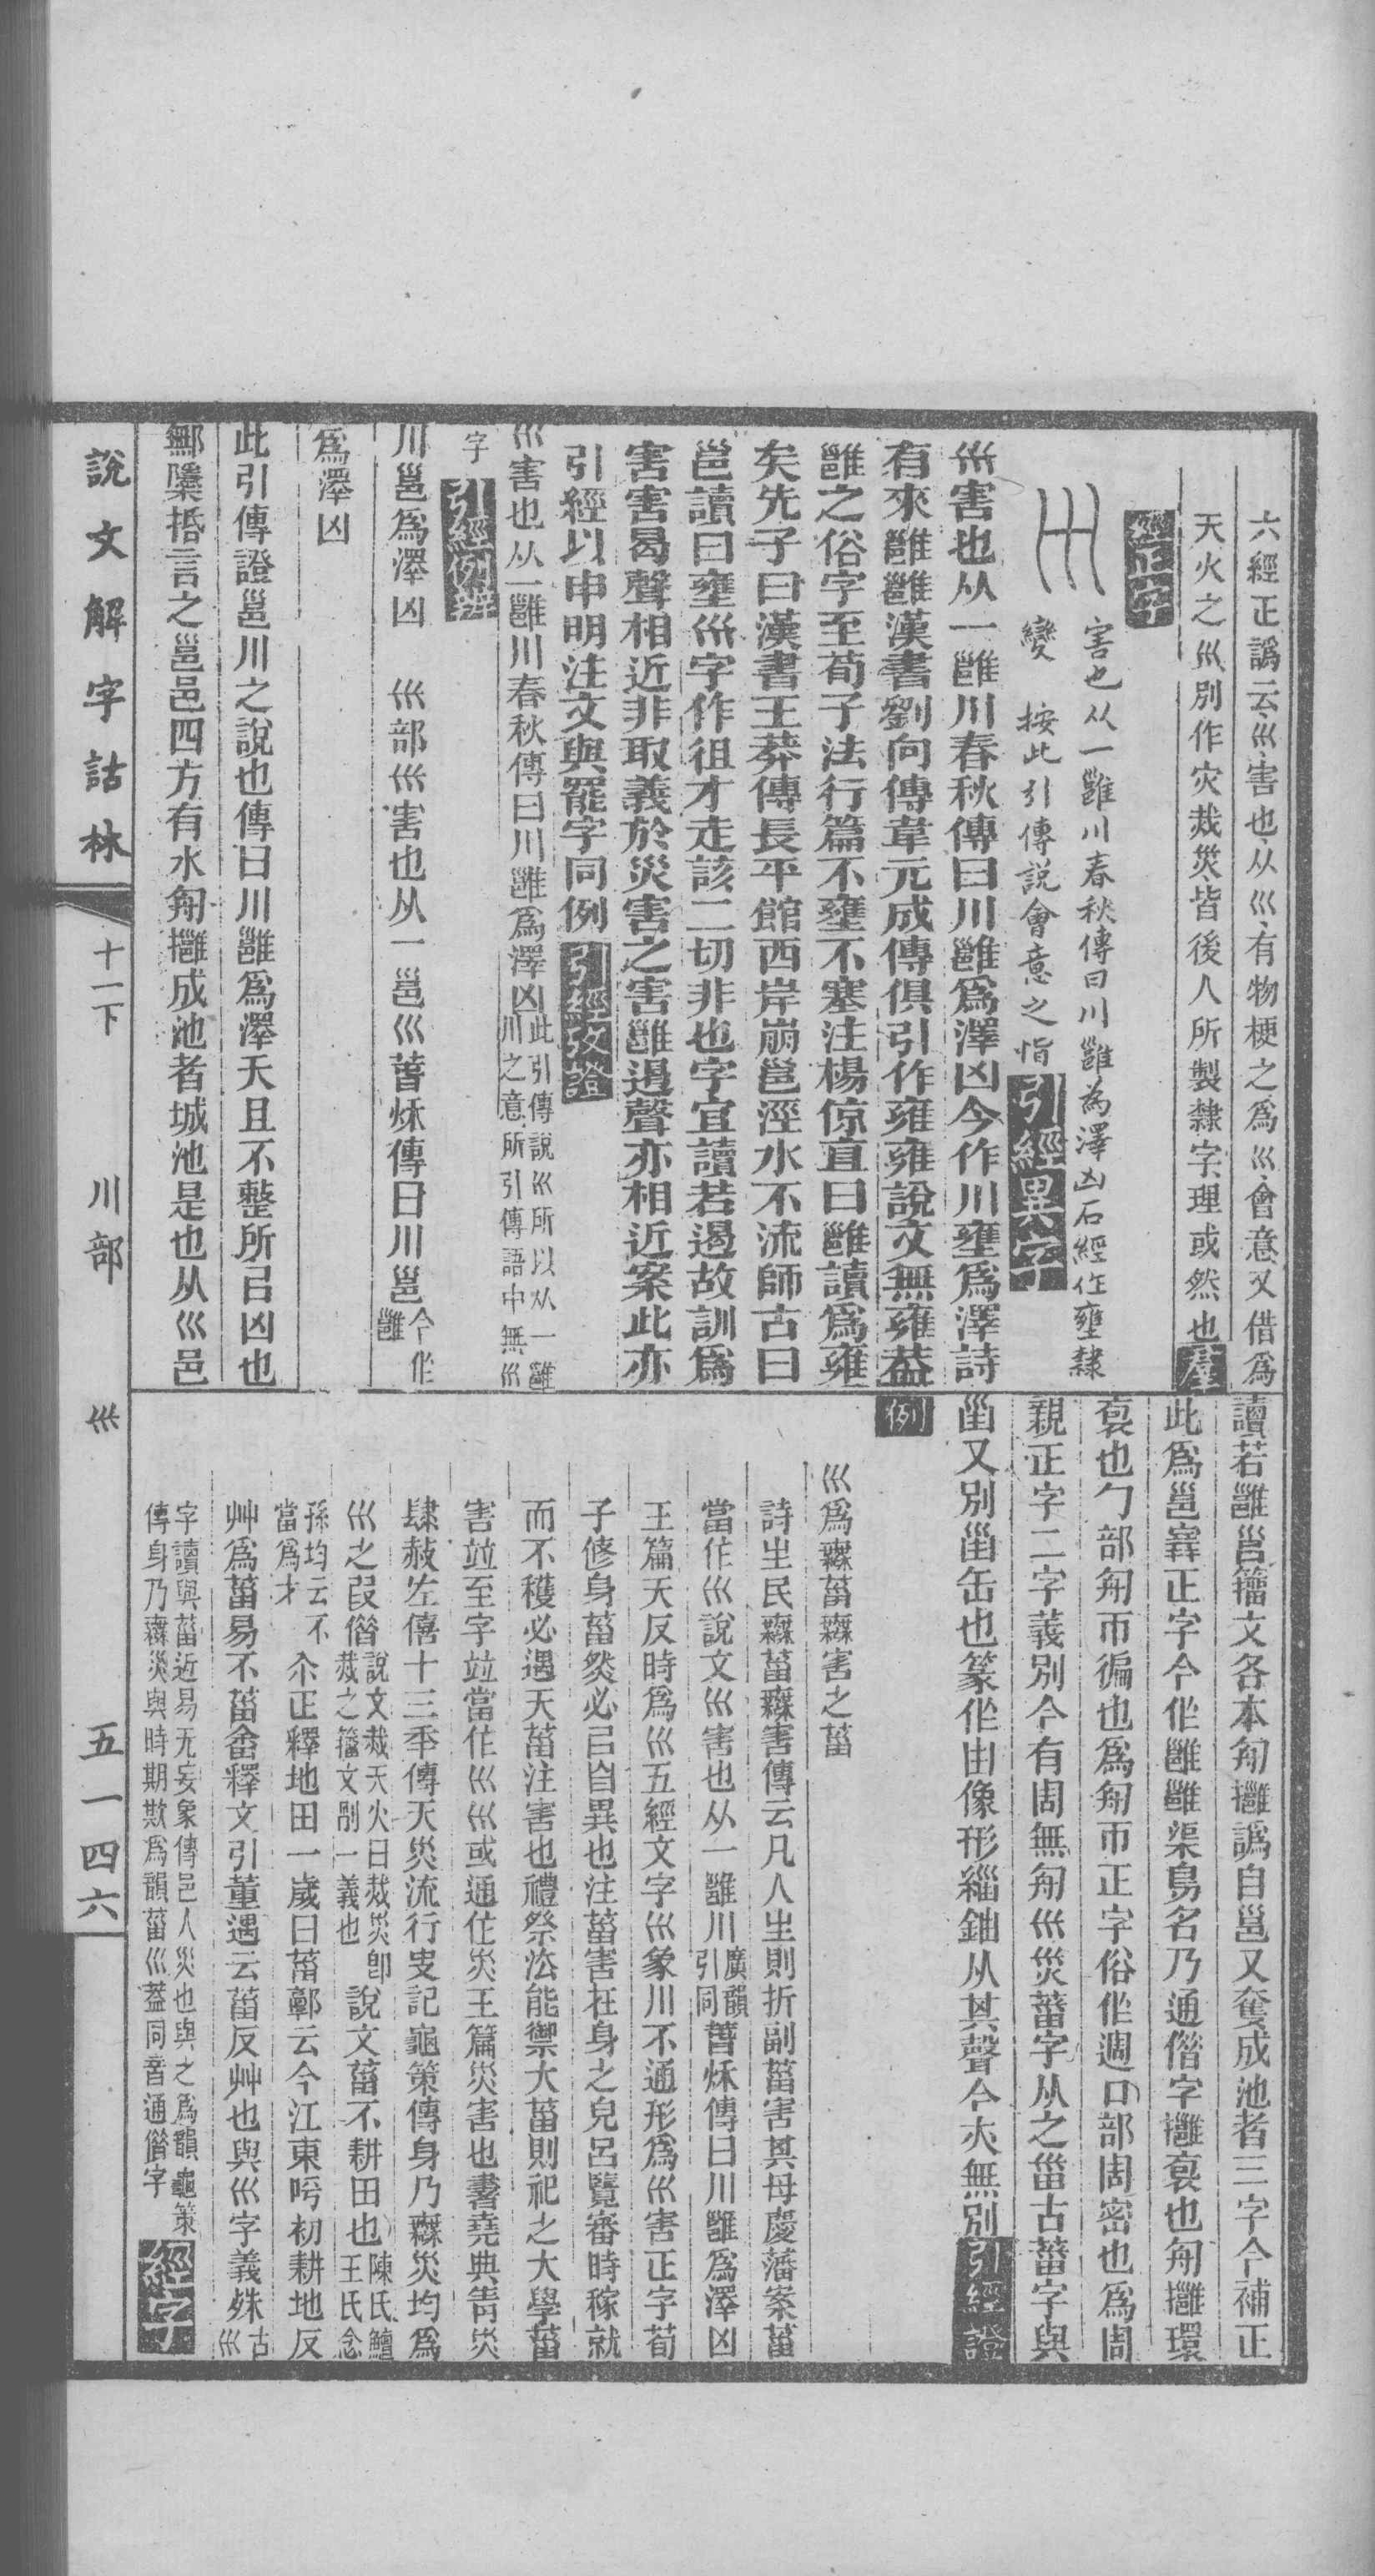 六經正譌云巛害也从巛有物梗之爲巛會意又借爲
天火之巛別作灾烖災皆後人所製隸字理或然也
經正字
害也从一雝川春秋傳曰川雝為澤凶石經作壅隸
變　按此引傳説會意之恉
引經異字
𡿧害也从一雝川春秋傳曰川雝爲澤凶今作川壅爲澤詩
有來雝雝漢書劉向傳韋元成傳俱引作雍雍說文無雍葢
雝之俗字至荀子法行篇不壅不塞注楊倞直曰雝讀爲雍
矣先子曰漢書王莽傳長平館西岸崩邕涇水不流師古曰
邕讀曰壅𡿧字作徂才走該二切非也字宜讀若遏故訓爲
害害曷聲相近非取義於災害之害雝遏聲亦相近案此亦
引經以申明注文與罷字同例
引經攷證
巛害也从一雝川春秋傳曰川雝爲澤凶
此引傳說巛所以从一雝
川之意所引傳語中無巛
字
引經例辨
川邕爲澤凶　𡿧部巛害也从一邕巛萅秌傳曰川邕
今作
雝
爲澤凶
此引傳證邕川之說也傳曰川雝爲澤天且不整所㠯凶也
鄦櫽㧻言之邕邑四方有水匊㩴成池者城池是也从巛邑
讀若雝邕籀文各本匊㩴譌自邕又奪成池者三字今補正
此爲邕𡫳正字今作雝雝渠鳥名乃通借字㩴裒也匊㩴環
裒也勹部匊帀徧也爲匊帀正字俗作週口部周密也爲周
親正字二字義別今有周無匊𡿧災葘字从之甾古葘字與
甾又別甾缶也篆作由像形緇鍿从其聲今夶無別
引經證
例
巛爲無菑無害之菑
詩生民無菑無害傳云凡人生則折副菑害其母慶藩案菑
當作巛說文巛害也从一雝川
廣韻
引同
萅秌傳曰川雝爲澤凶
王篇天反時爲巛五經文字巛象川不通形爲巛害正字荀
子修身菑然必㠯自異也注菑害在身之皃呂覽審時稼就
而不穫必遇天菑注害也禮祭法能禦大菑則祀之大學菑
害竝至字竝當作巛巛或通作災王篇災害也書堯典眚災
肆赦左僖十三秊傳天災流行史記龜策傳身乃無災均爲
巛之叚借
說文烖天火曰烖災即
烖之籀文別一義也
說文菑不耕田也
陳氏鱣
王氏念
孫均云不
當爲才
尒正釋地田一歲曰菑郭云今江東呼初耕地反
艸爲菑易不菑畬釋文引董遇云菑反艸也與巛字義殊
古
巛
字讀與菑近易无妄象傳邑人災也與之爲韻龜策
傳身乃無災與時期欺爲韻菑巛葢同音通借字
經字
說文解字詁林　十一下　川部　𡿧　五一四六